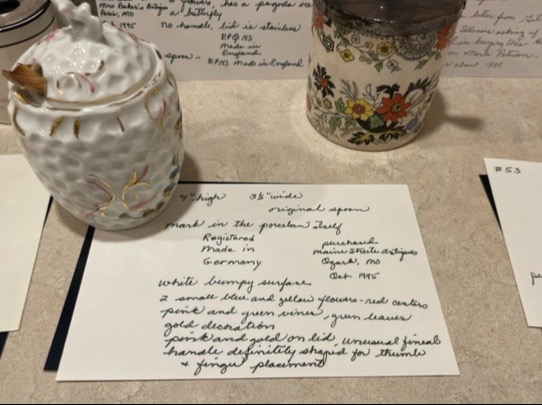 flowers, has a pagoda
a butterfly
Mrs Baker's Antiques
MO
1995
no handle, lid is stainless
EP@NS
Made in
England
spoon - EPNS made in England
letter from
about 1980
#53
4" high 3½" wide
original spoon
mark in the porcelain itself
Registered
Made in
Germany
purchased
Maine Streete Antiques
Ozark, MO
Oct 1995
white bumpy surface
2 small blue and yellow flowers - red centers
pink and green vines, green leaves
gold decoration
pink and gold on lid, unusual finial
handle definitely shaped for thumb
& finger placement